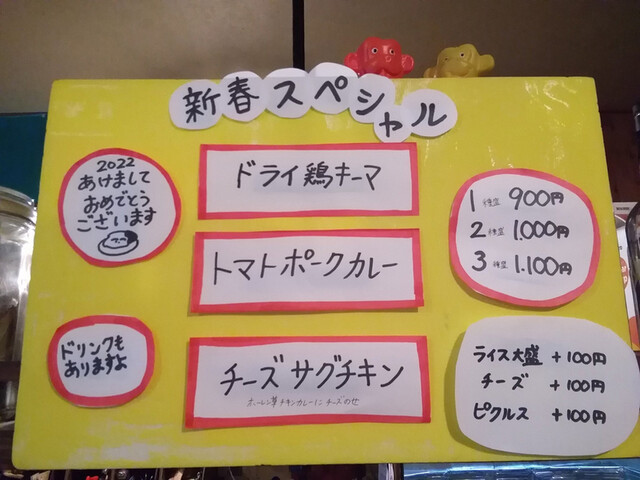 新春スペシャル
2022
あけまして
おめでとう
ございます
ドライ鶏キーマ
トマトポークカレー
チーズサグチキン
ホーレン草チキンカレーにチーズのせ
1種盛 900円
2種盛 1.000円
3種盛 1.100円
ドリンクも
ありますよ
ライス大盛 +100円
チーズ +100円
ピクルス +100円